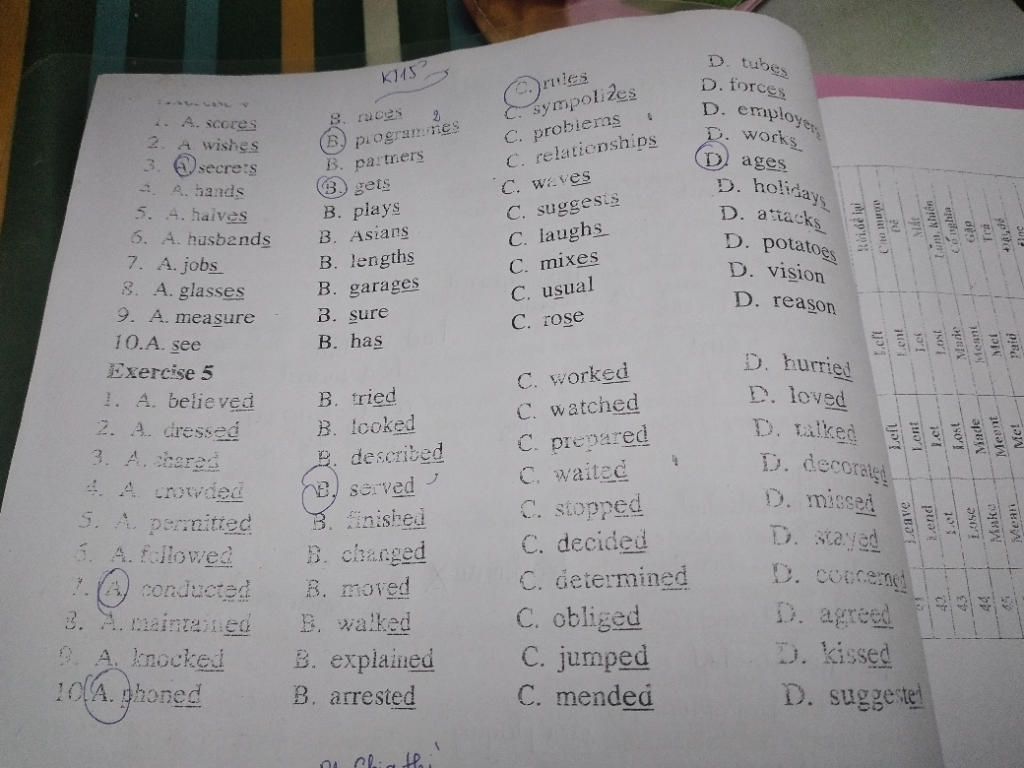 KT15'
1. A. scores B. races C. rules D. tubes
2. A wishes B. programmes C. sympolizes D. forces
3. A secrets B. partners C. problems D. employers
4. A. hands B. gets C. relationships D. works
5. A. halves B. plays C. waves D. ages
6. A. husbands B. Asians C. suggests D. holidays
7. A. jobs B. lengths C. laughs D. attacks
8. A. glasses B. garages C. mixes D. potatoes
9. A. measure B. sure C. usual D. vision
10.A. see B. has C. rose D. reason
Exercise 5
1. A. believed B. tried C. worked D. hurried
2. A. dressed B. looked C. watched D. loved
3. A. shared B. described C. prepared D. talked
4. A. crowded B. served C. waited D. decorated
5. A. permitted B. finished C. stopped D. missed
6. A. followed B. changed C. decided D. stayed
7. A. conducted B. moved C. determined D. concerned
8. A. maintained B. walked C. obliged D. agreed
9. A. knocked B. explained C. jumped D. kissed
10 A. phoned B. arrested C. mended D. suggested
41 Leave Left Left
42 Lend Lent Lent
43 Let Let Let
44 Lose Lost Lost
Make Made Made
45 Mean Meant Meant
Met Met
Paid